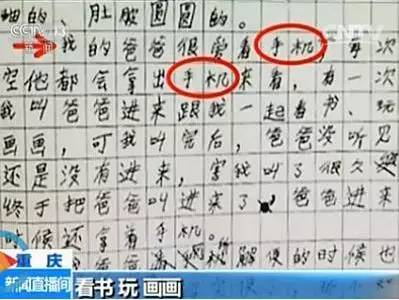 CCTV 13
新闻
CNTV
细的、肚皮圆圆的。
我的爸爸很爱看手机，每次
空他都会拿出手机来看，有一次
我叫爸爸进来跟我一起看书、玩
画画，可我叫完后，爸爸没听见
还是没有进来，害我叫了很久
终于把爸爸叫进来了 爸爸进来
时候还拿着手机。
解便的时候也
重庆
新闻直播间
看书 玩 画画